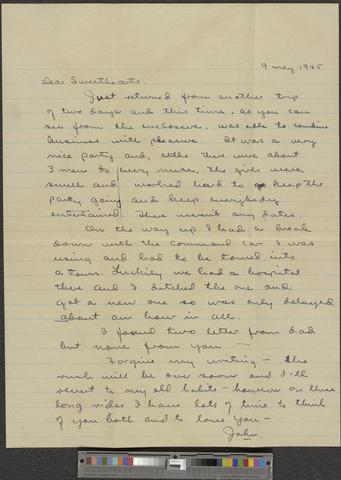 9 May 1945
Dear Sweethearts.
Just returned from another trip
of two days and this time, as you can
see from the enclosure, was able to combine
business with pleasure. It was a very
nice party and, altho there were about
3 men to every nurse, the girls were
swell and worked hard to keep the
party going and keep everybody
entertained. There weren't any dates.
On the way up I had a break
down with the command car I was
using and had to be towed into
a town. Luckily we had a hospital
there and I ditched the one and
got a new one so was only delayed
about an hour in all.
I found two letter from dad
but none from you —
Forgive my writing — the
rush will be over soon and I'll
revert to my old habits — however on these
long rides I have lots of time to think
of you both and to love you —
John